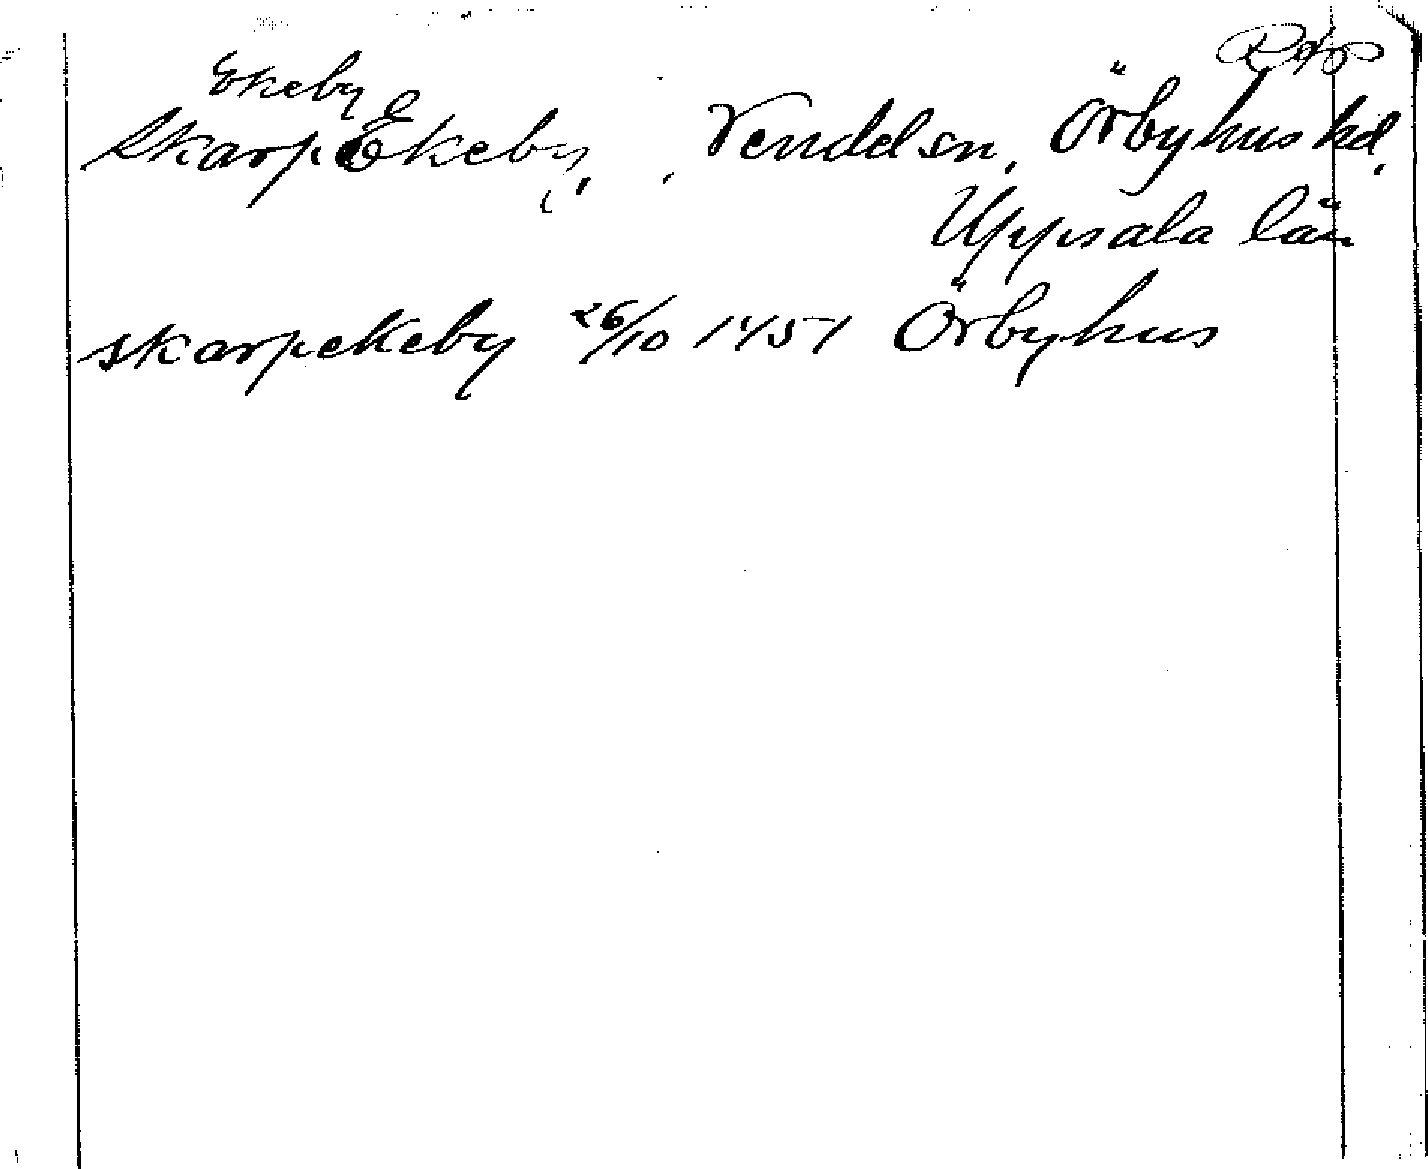 Ekeby
SkarpEkeby, Vendel sn, Örbyhus hd,
Uppsala län
skarpekeby 26/10 1451 Örbyhus